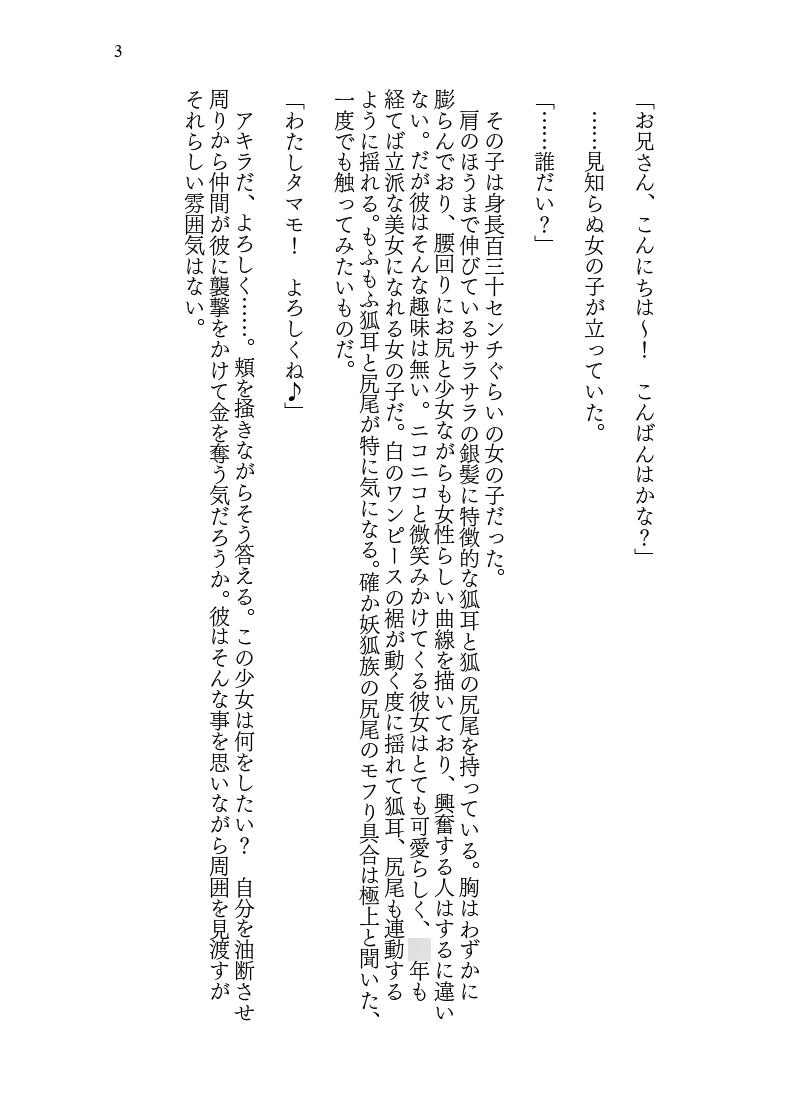 3
「お兄さん、こんにちは～！　こんばんはかな？」
……見知らぬ女の子が立っていた。
「……誰だい？」
その子は身長百三十センチぐらいの女の子だった。
肩のほうまで伸びているサラサラの銀髪に特徴的な狐耳と狐の尻尾を持っている。
だが彼はそんな趣味は無い。ニコニコと微笑みかけてくる彼女はとても可愛らしく、年も
経てば立派な美女になれる女の子だ。白のワンピースの裾が動く度に揺れて狐耳、尻尾も連動する
ように揺れる。もふもふ狐耳と尻尾が特に気になる。確か妖狐族の尻尾のモフり具合は極上と聞いた、
一度でも触ってみたいものだ。
「わたしタマモ！　よろしくね♪」
アキラだ、よろしく……。頬を掻きながらそう答える。この少女は何をしたい？　自分を油断させ
周りから仲間が彼に襲撃をかけて金を奪う気だろうか。彼はそんな事を思いながら周囲を見渡すが
それらしい雰囲気はない。